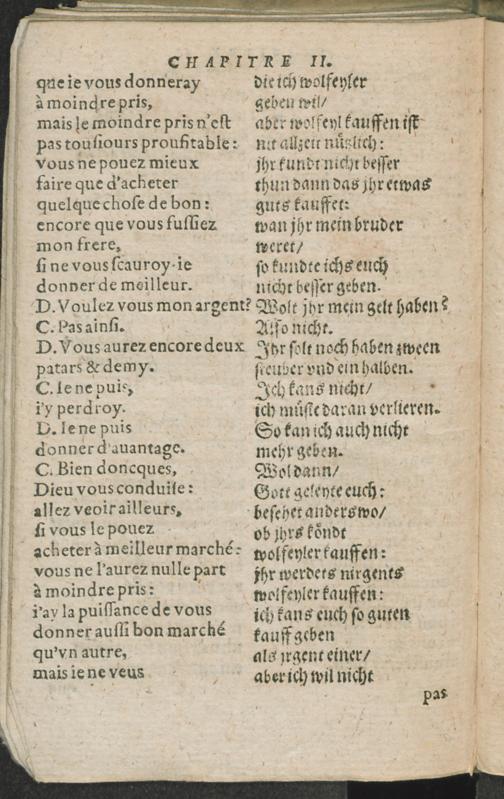 CHAPITRE II.
que ie vous donneray
à moindre pris,
mais le moindre pris n'est
pas tousiours proufitable:
vous ne pouez mieux
faire que d'acheter
quelque chose de bon:
encore que vous fussiez
mon frere,
si ne vous scauroy-ie
donner de meilleur.
D. Voulez vous mon argent?
C. Pas ainsi.
D. Vous aurez encore deux
patars & demy.
C. Ie ne puis,
i'y perdroy.
D. Ie ne puis
donner d'auantage.
C. Bien doncques,
Dieu vous conduise:
allez veoir ailleurs,
si vous le pouez
acheter à meilleur marché:
vous ne l'aurez nulle part
à moindre pris:
i'ay la puissance de vous
donner aussi bon marché
qu'vn autre,
mais ie ne veus
die ich wolfeyler
geben wil/
aber wolfeyl kauffen ist
nit allzeit nützlich:
jhr kundt nicht besser
thun dann das jhr etwas
guts kauffet:
wan jhr mein bruder
weret/
so kundte ichs euch
nicht besser geben.
Wolt jhr mein gelt haben?
Also nicht.
Jhr solt noch haben zween
steuber vnd ein halben.
Jch kans nicht/
ich müste daran verlieren.
So kan ich auch nicht
mehr geben.
Wol dann/
Gott geleyte euch:
besehet anderswo/
ob jhrs köndt
wolfeyler kauffen:
jhr werdets nirgents
wolfeyler kauffen:
ich kans euch so guten
kauff geben
als jrgent einer/
aber ich wil nicht
pas